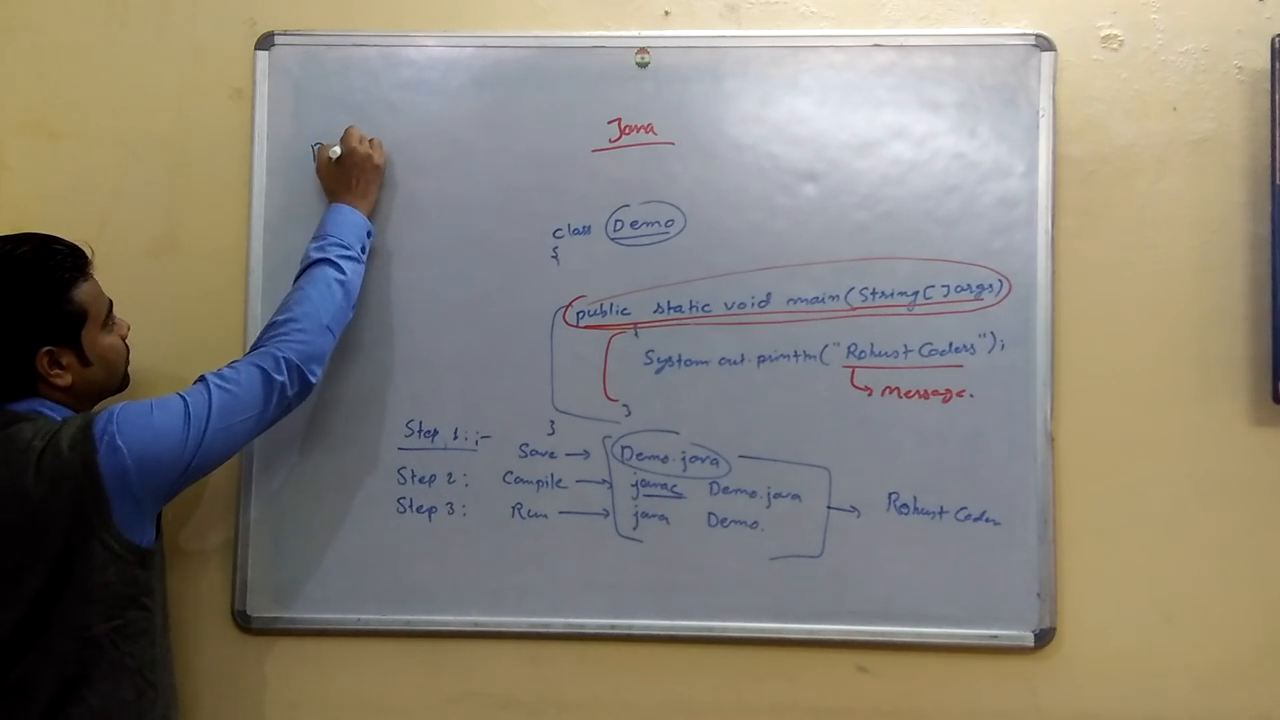 Java
class Demo
{
public static void main(String[]args)
{
System.out.println("Robust Coders");
Message.
}
}
Step 1:;-
Save → Demo.java
Step 2: Compile → javac Demo.java
Step 3: Run → java Demo.
→ Robust Coder